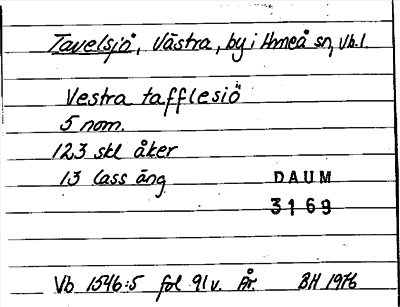 Tavelsjö, Västra, by i Umeå sn, Vb.l.
Vestra tafflesiö
5 nom.
123 skl åker
13 lass äng
DAUM
3169
Vb 1546:5 fol 91v. År. BH 1976